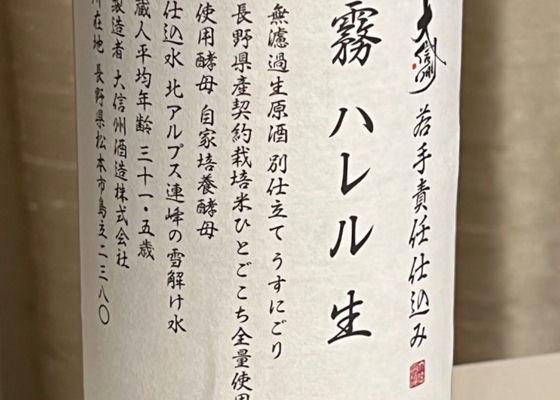 大信州 若手責任仕込み
霧ハレル生
無濾過生原酒 別仕立て うすにごり
長野県産契約栽培米ひとごこち全量使用
使用酵母 自家培養酵母
仕込水 北アルプス連峰の雪解け水
蔵人平均年齢 三十一・五歳
製造者 大信州酒造株式会社
所在地 長野県松本市島立二三八〇